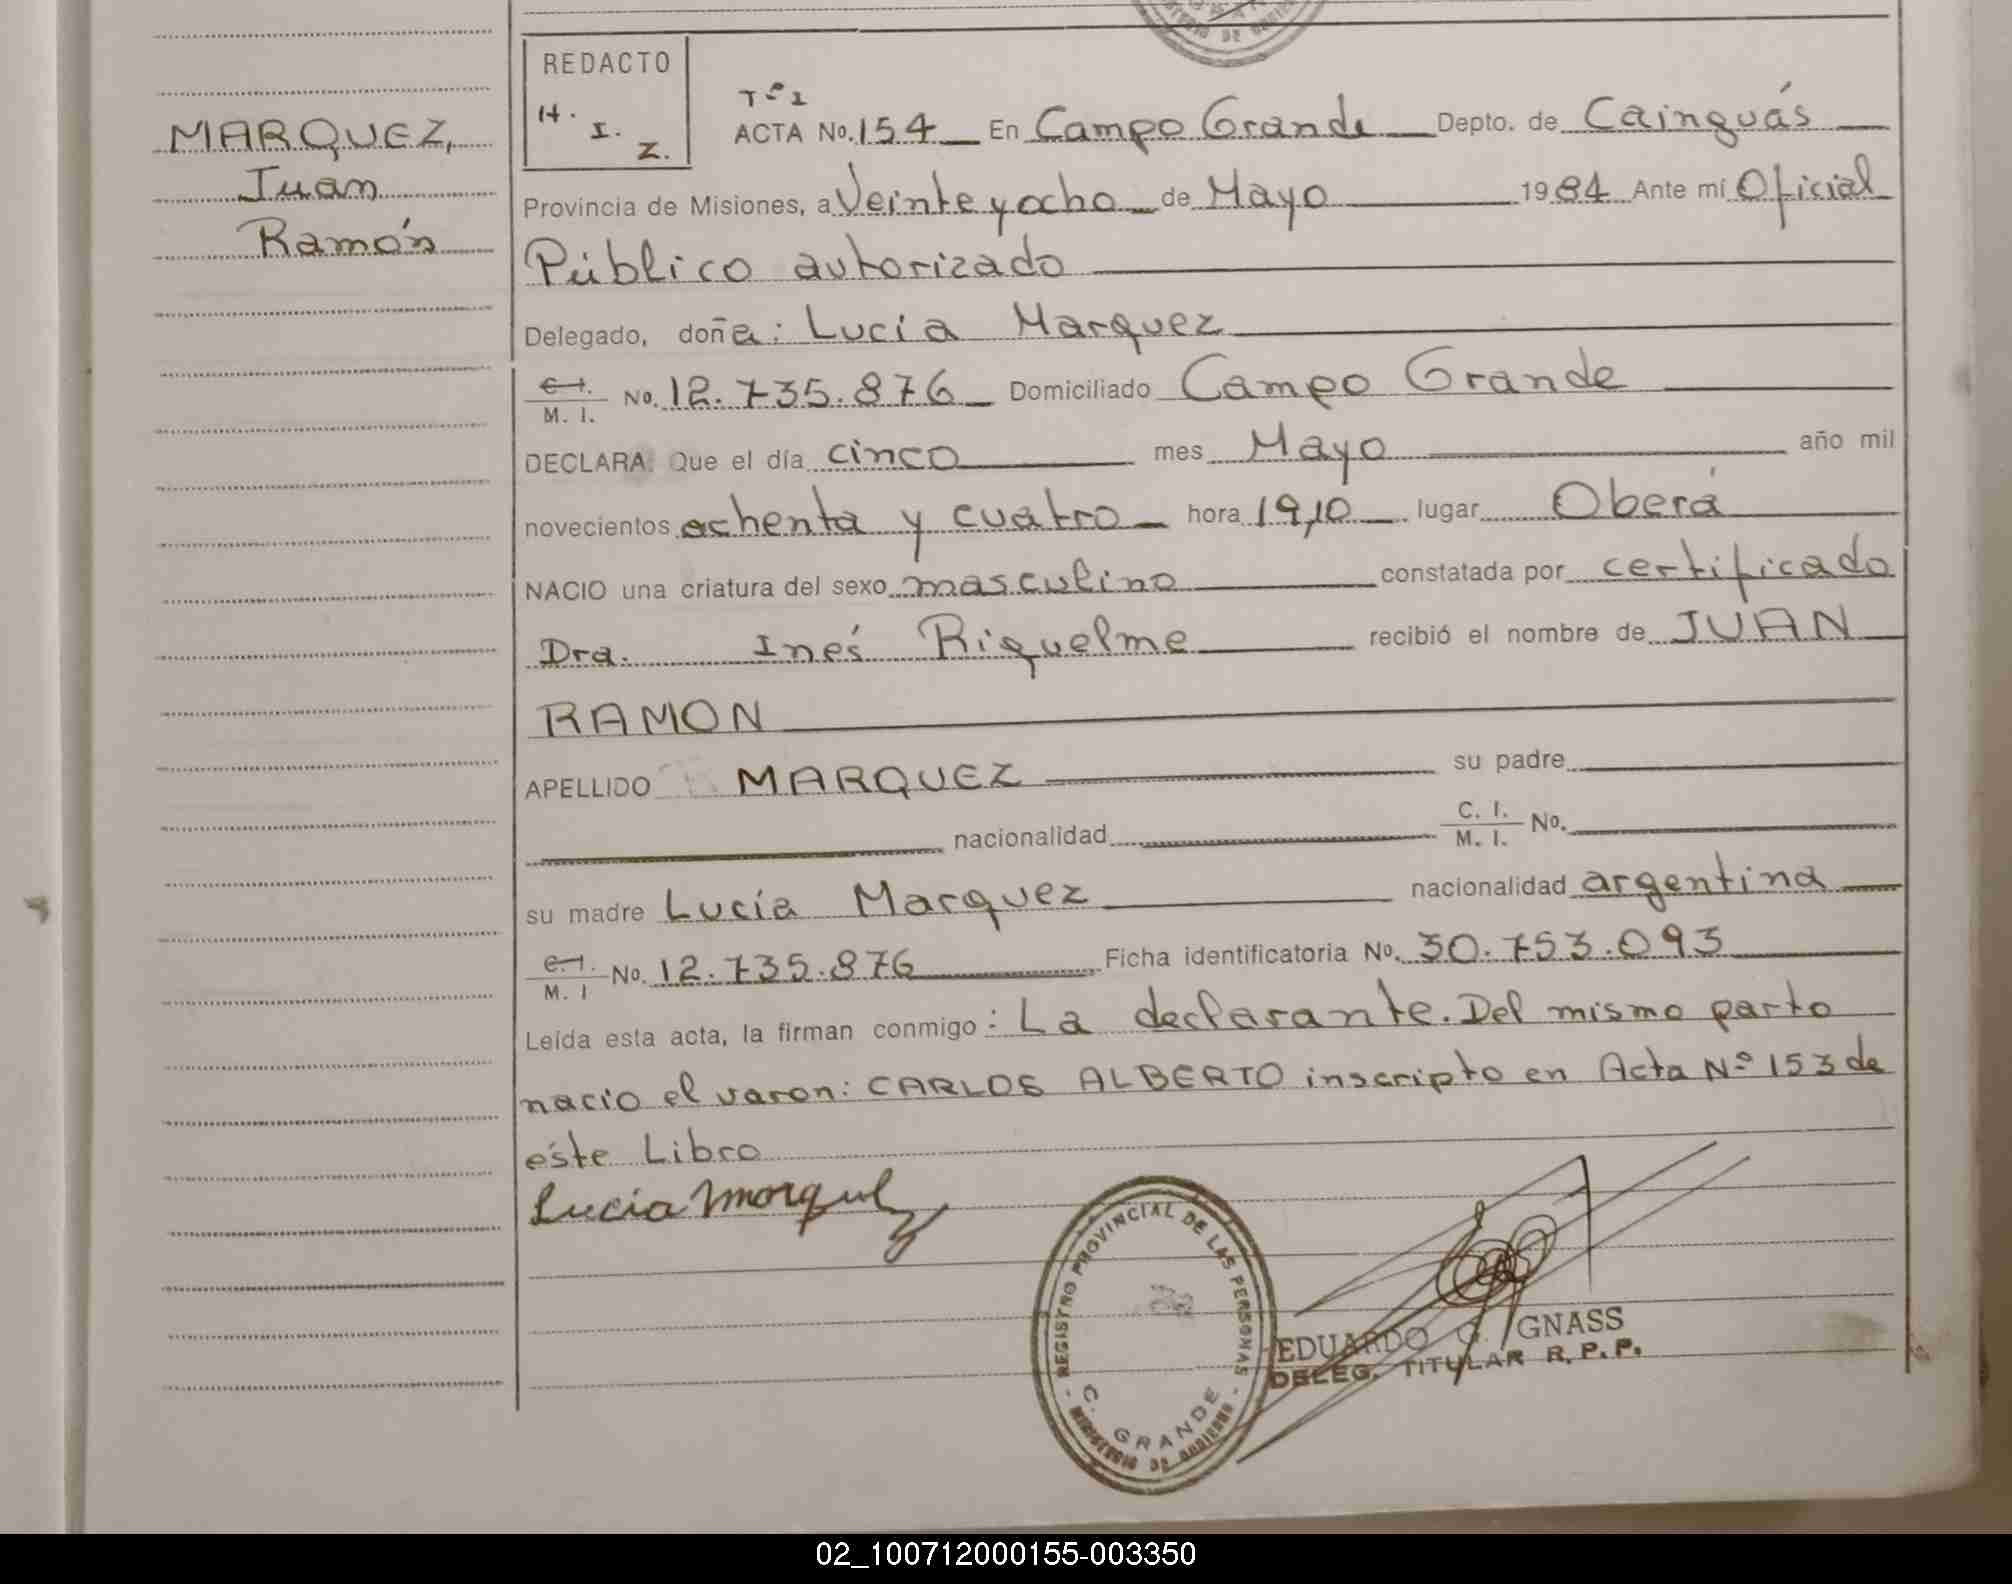 MARQUEZ,
Juan
Ramón
REDACTO
H. I. Z.
Tº 1
ACTA No. 154 En Campo Grande Depto. de Cainguás
Provincia de Misiones, a Veinte y ocho de Mayo 1984 Ante mí Oficial
Público autorizado
Delegado, doña: Lucía Marquez
C.I. M. I. No. 12.735.876 Domiciliado Campo Grande
DECLARA: Que el día cinco mes Mayo año mil
novecientos ochenta y cuatro hora 19,10 lugar Oberá
NACIO una criatura del sexo masculino constatada por certificado
Dra. Inés Riquelme recibió el nombre de JUAN
RAMON
APELLIDO MARQUEZ su padre
nacionalidad C. I. M. I. No.
su madre Lucía Marquez nacionalidad argentina
C.I. M. I No. 12.735.876 Ficha identificatoria No. 30.753.093
Leída esta acta, la firman conmigo: La declarante. Del mismo parto
nacio el varon: CARLOS ALBERTO inscripto en Acta Nº 153 de
éste Libro
Lucia Marquez
REGISTRO PROVINCIAL DE LAS PERSONAS
C. GRANDE
MINISTERIO DE GOBIERNO
EDUARDO G. GNASS
DELEG. TITULAR R. P. P.
02_100712000155-003350